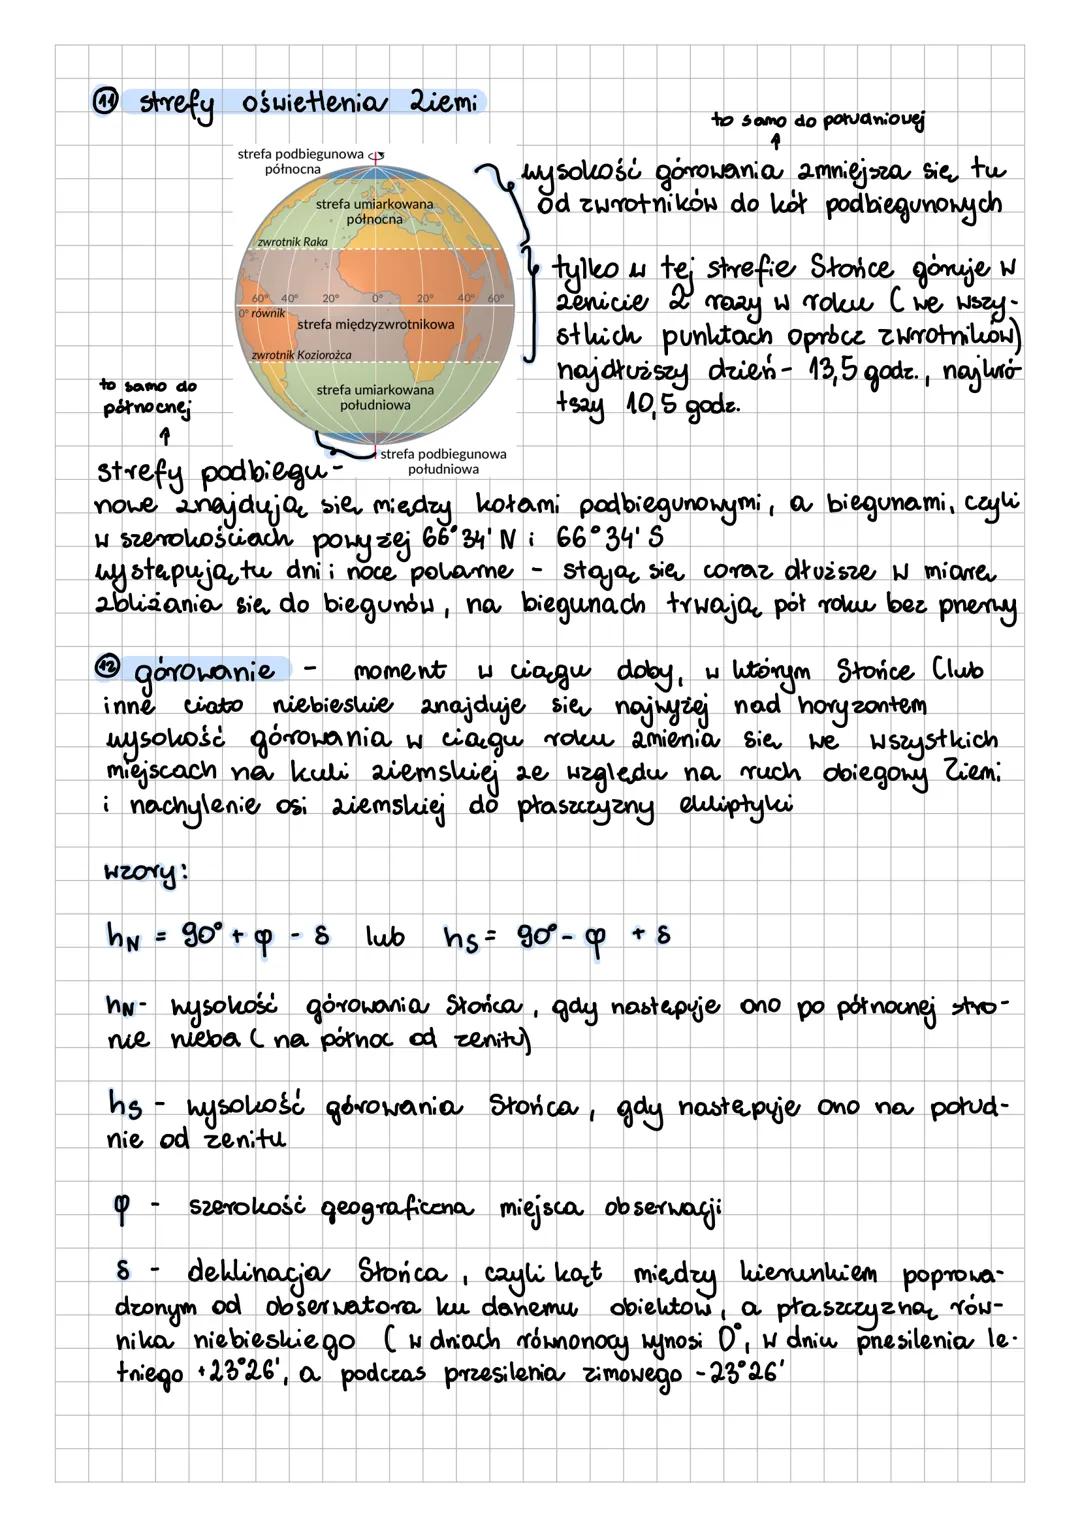 11 strefy oświetlenia Ziemi
to samo do południowej
strefa podbiegunowa
północna
strefa umiarkowana
północna
zwrotnik Raka
60° 40° 20° 0° 20° 40° 60°
0° równik
strefa międzyzwrotnikowa
zwrotnik Koziorożca
strefa umiarkowana
południowa
strefa podbiegunowa
południowa
wysokość górowania zmniejsza się tu
od zwrotników do kół podbiegunowych
tylko w tej strefie Słońce góruje w
zenicie 2 razy w roku (we wszy-
stkich punktach oprócz zwrotników)
najdłuższy dzień - 13,5 godz., najkró-
tszy 10,5 godz.
to samo do
północnej
strefy podbiegu-
nowe znajdują się między kołami podbiegunowymi, a biegunami, czyli
w szerokościach powyżej 66°34' N i 66°34' S
występują tu dni i noce polarne - stają się coraz dłuższe w miarę
zbliżania się do biegunów, na biegunach trwają pół roku bez przerwy
12 górowanie - moment w ciągu doby, w którym Słońce (lub
inne ciało niebieskie znajduje się najwyżej nad horyzontem
wysokość górowania w ciągu roku zmienia się we wszystkich
miejscach na kuli ziemskiej ze względu na ruch obiegowy Ziemi
i nachylenie osi ziemskiej do płaszczyzny ekliptyki
wzory:
hN = 90° + φ - δ lub hS = 90° - φ + δ
hN - wysokość górowania Słońca, gdy następuje ono po północnej stro-
nie nieba (na północ od zenitu)
hS - wysokość górowania Słońca, gdy następuje ono na połud-
nie od zenitu
φ - szerokość geograficzna miejsca obserwacji
δ - deklinacja Słońca, czyli kąt między kierunkiem poprowa-
dzonym od obserwatora ku danemu obiektow, a płaszczyzną rów-
nika niebieskiego (w dniach równonocy wynosi 0°, w dniu przesilenia le-
tniego +23°26', a podczas przesilenia zimowego -23°26'